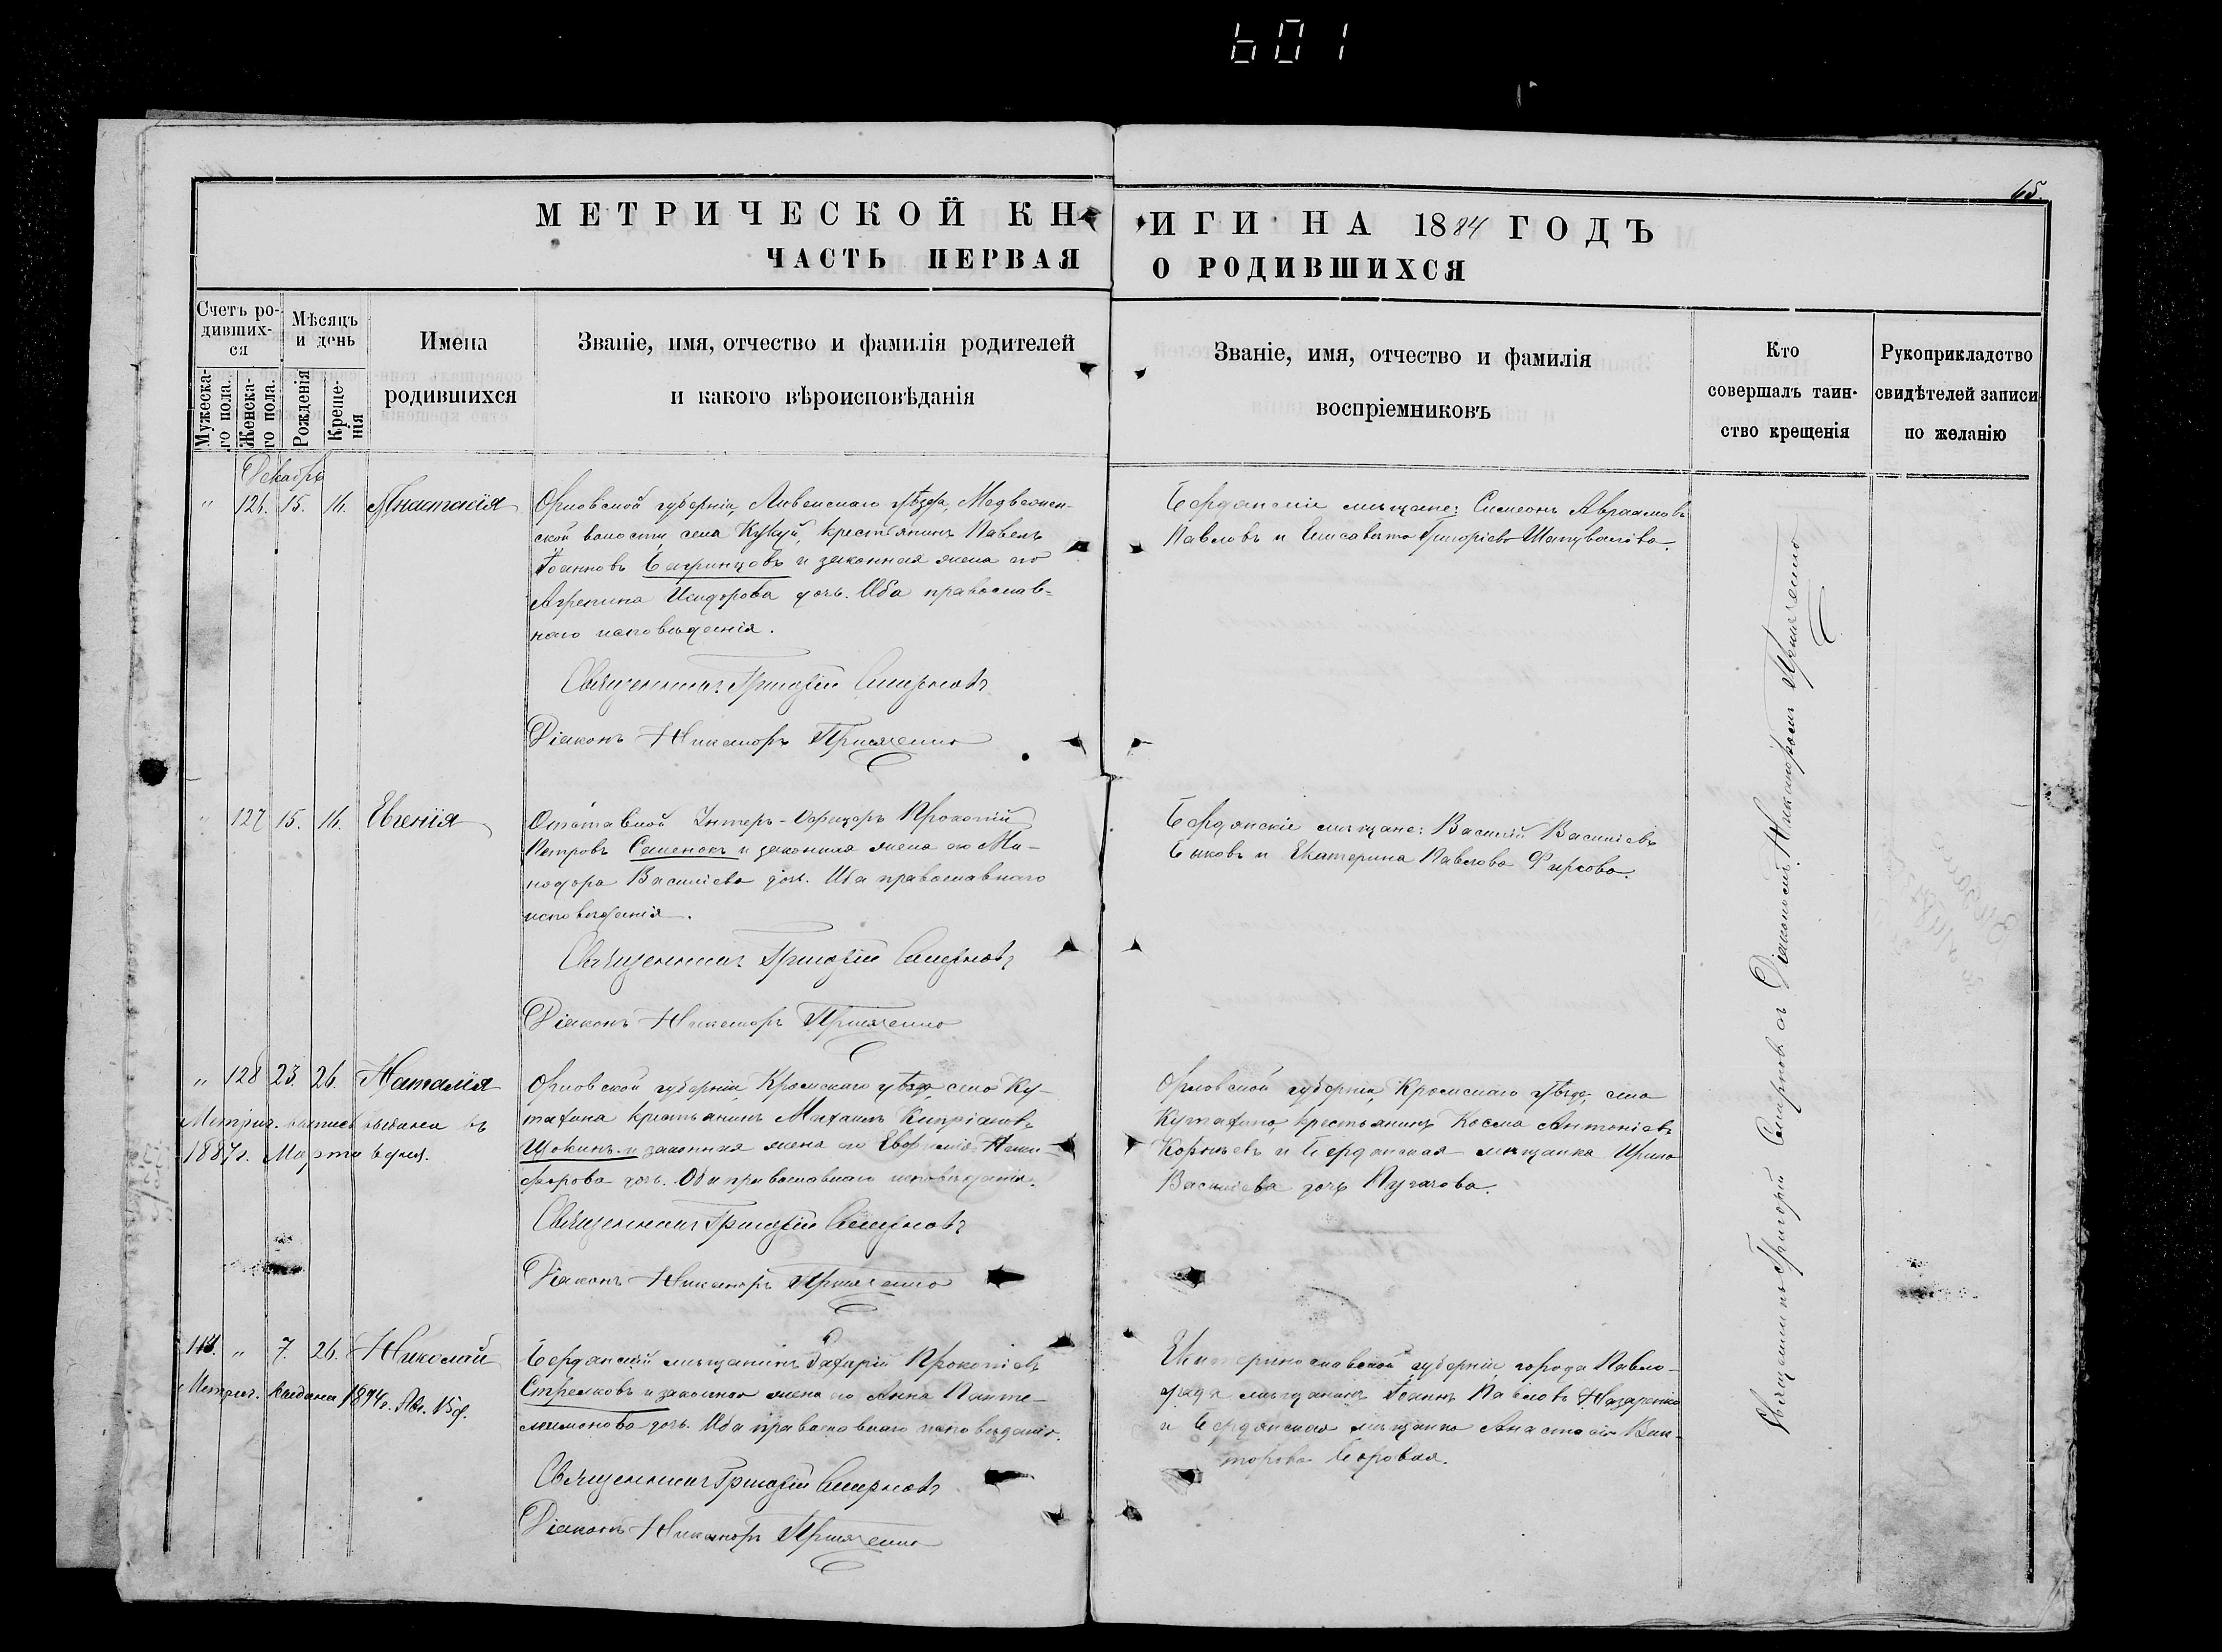 601
65.
МЕТРИЧЕСКОЙ КНИГИ НА 1884 ГОДЪ
ЧАСТЬ ПЕРВАЯ О РОДИВШИХСЯ
Счетъ ро-
дивших-
ся
Мужеска-
го пола.
Женска-
го пола.
Мѣсяцъ
и день
Рожденія
Креще-
нія
Имена
родившихся
Званіе, имя, отчество и фамилія родителей
и какого вѣроисповѣданія
Званіе, имя, отчество и фамилія
воспріемниковъ
Кто
совершалъ таин-
ство крещенія
Рукоприкладство
свидѣтелей записи
по желанію
Декабрь
" 126. 15. 16. Анастасія
Орловской губерніи, Ливенскаго уѣзда, Медвежен-
ской волости, села Кукуй, крестьянинъ Павелъ
Іоанновъ и законная жена его
Агрепина Исидорова дочь. Оба православ-
наго исповѣданія.
Священникъ Григорій Смирновъ
Діаконъ Никаноръ
Бердянскіе мѣщане: Симеонъ Авраамовъ
Павловъ и Елисавета Григоріева
" 127 15. 16. Евгенія
Отставной Унтеръ-Офицеръ Прокопій
Петровъ Семенокъ и законная жена его Ми-
нодора Василіева дочь. Оба православнаго
исповѣданія.
Священникъ Григорій Смирновъ
Діаконъ Никаноръ
Бердянскіе мѣщане: Василій Василіевъ
Быковъ и Екатерина Павлова Фирсова.
" 128 23. 26. Наталія
Метрич. выпись выдана въ
1887г. Марта
Орловской губерніи, Кромскаго уѣзда, села Ку-
тафина крестьянинъ Михаилъ Кипріановъ
Щокинъ и законная жена его Евфимія Ники-
форова дочь. Оба православнаго исповѣданія.
Священникъ Григорій Смирновъ
Діаконъ Никаноръ
Орловской губерніи Кромскаго уѣзда, села
Кутафина, крестьянинъ Косма Антоніевъ
Корнѣевъ и Бердянская мѣщанка Ирина
Василіева дочь Пугачова.
" 7. 26. Николай
Метрич. выдана 1894г. Авг. 15 д.
Бердянскій мѣщанинъ Захарій Прокопіевъ
Стрелковъ и законная жена его Анна Панте-
леимонова дочь. Оба православнаго исповѣданія.
Священникъ Григорій Смирновъ
Діаконъ Никаноръ
Екатеринославской губерніи, города Павло-
града мѣщанинъ Іоаннъ Павловъ Назаренко
и Бердянская мѣщанка Анастасія Вик-
торова Боровая.
Священникъ Григорій Смирновъ съ Діакономъ Никаноромъ